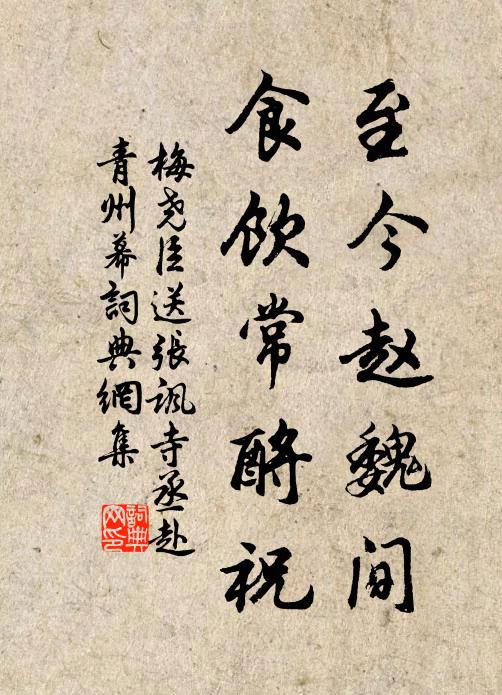 至今赵魏间
食饮常酹祝
梅尧臣送張諷寺丞赴
青州幕詞典網集